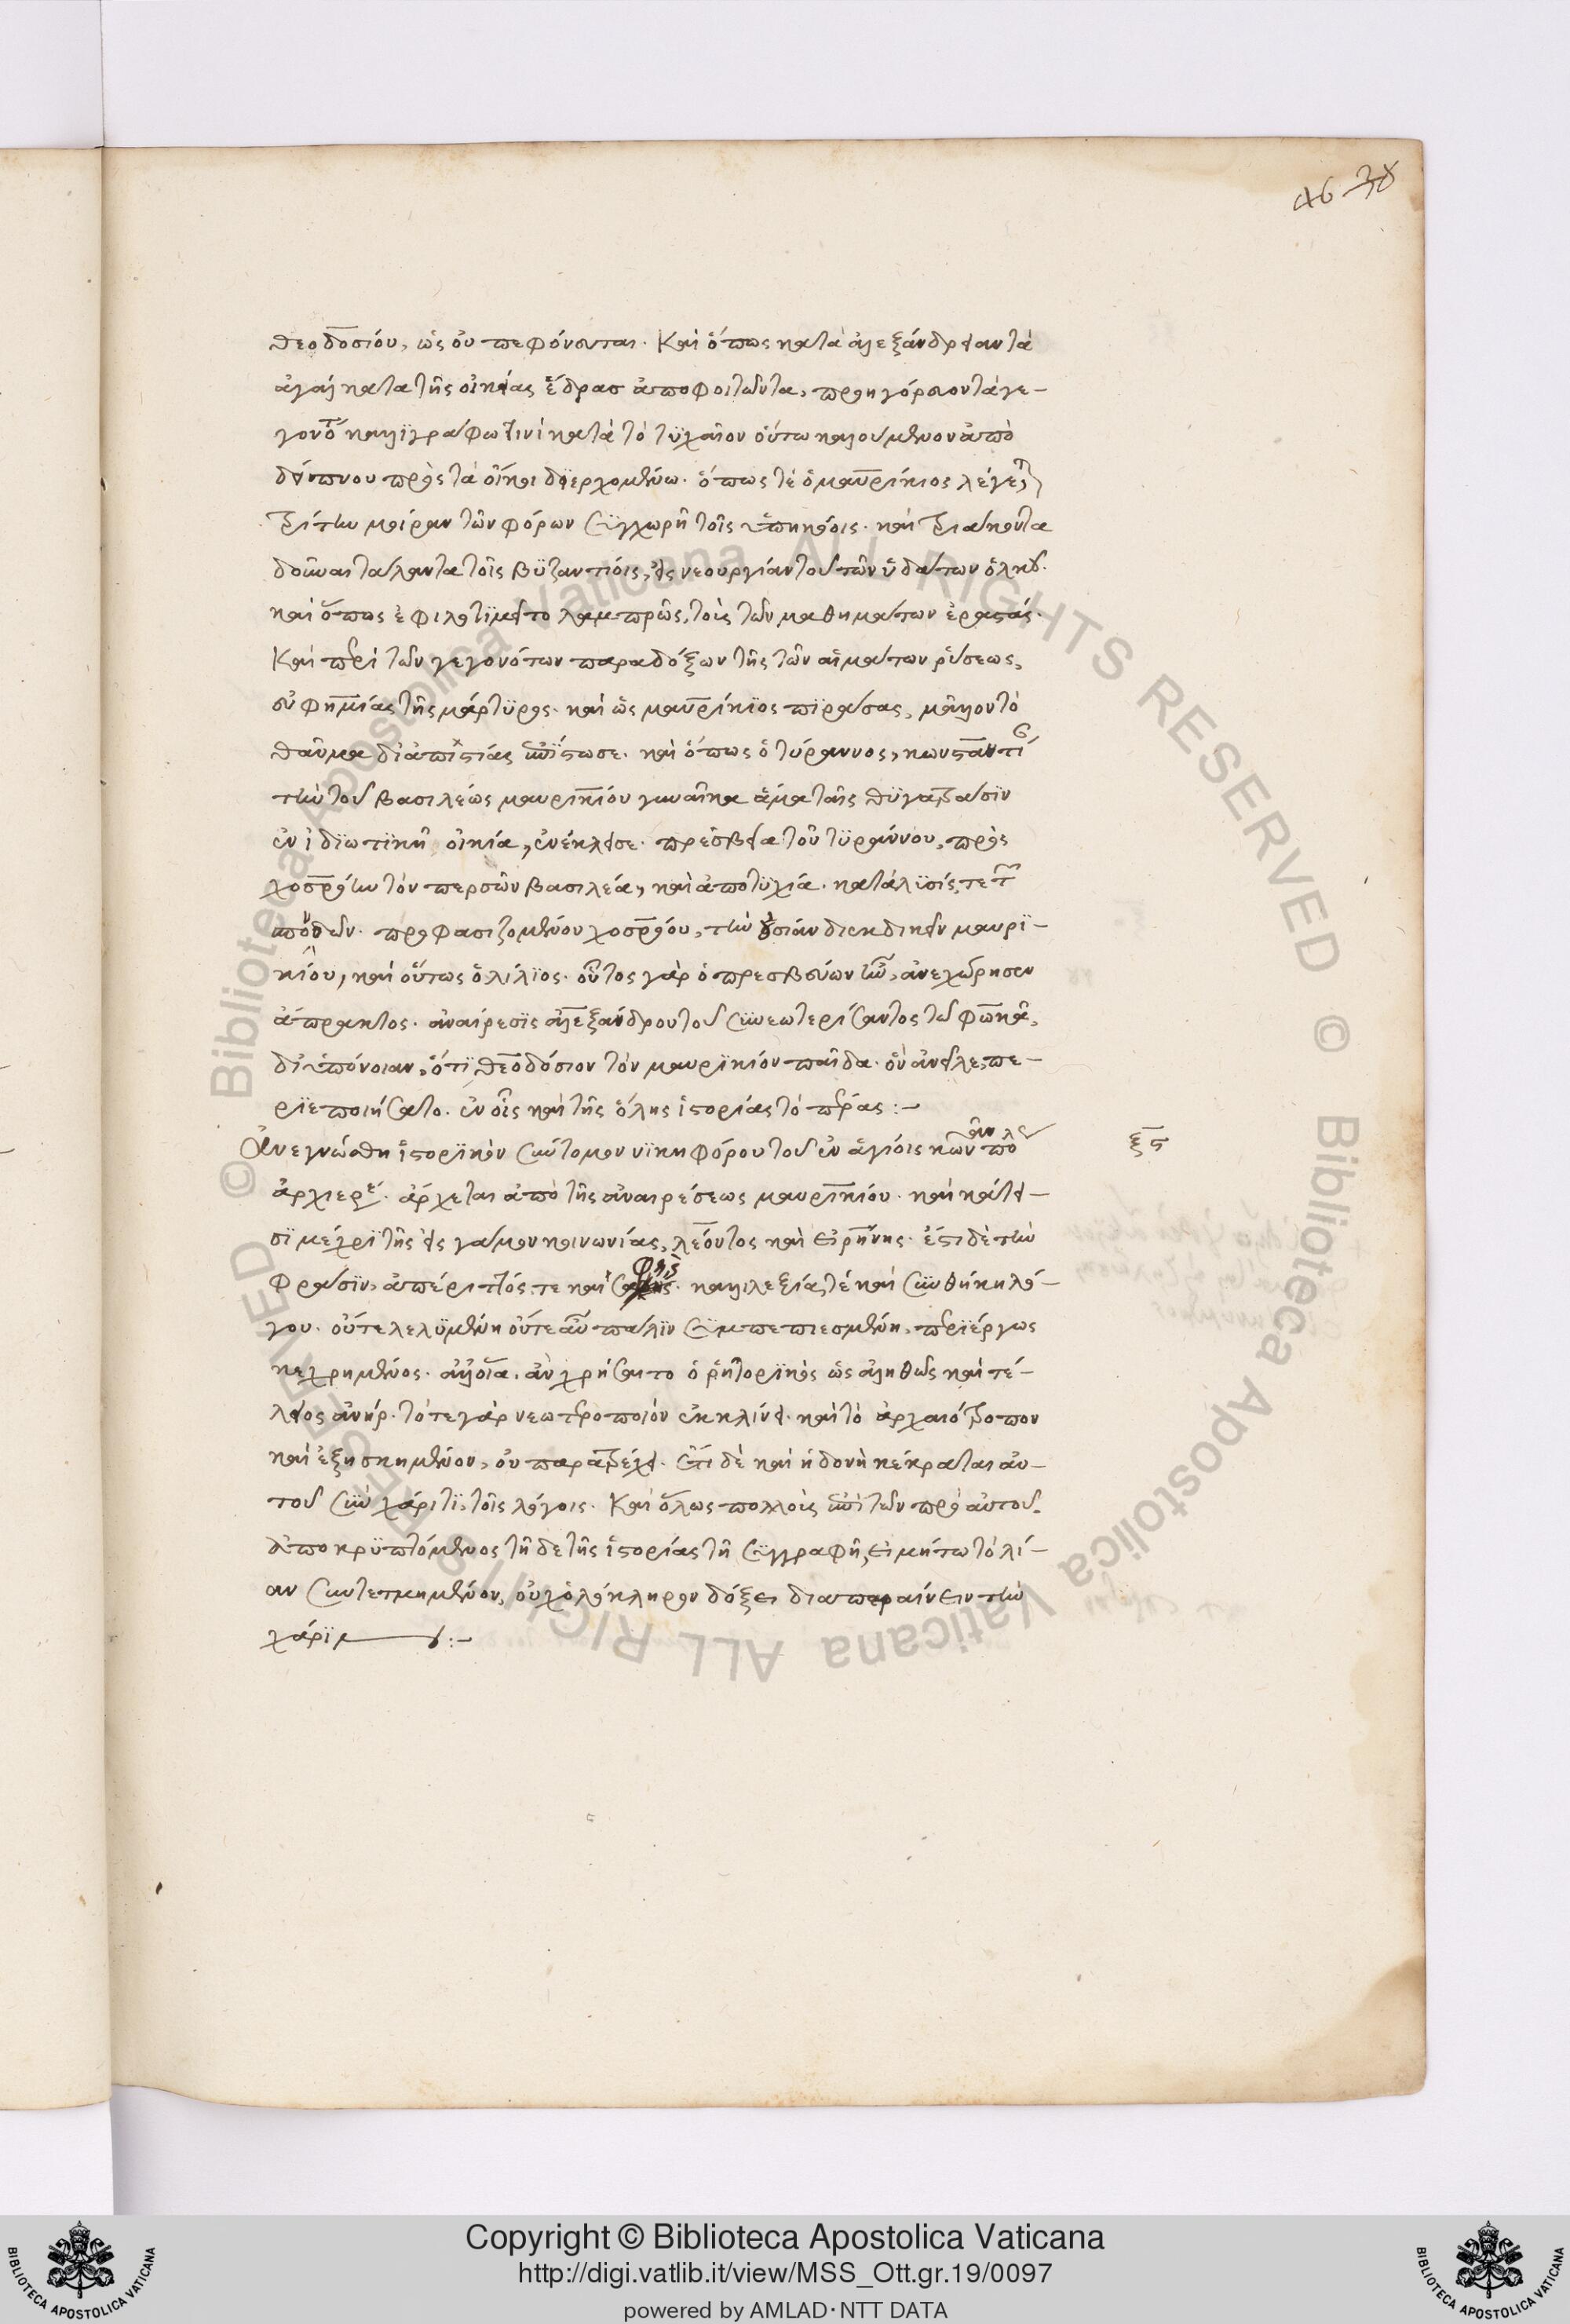 46 38
θεοδοσίου, ὡς οὐ πεφόνευται. Καὶ ὅπως κατὰ ἀλεξάνδρειαν τὰ
ἀγάλματα τῆς οἰκείας ἕδρας ἀποφοιτῶντα, προηγόρευον τὰ γε-
γονότα καλλιγράφω τινὶ κατὰ τὸ τυχαῖον οὕτω καλούμενον ἀπὸ
δείπνου πρὸς τὰ οἴκοι διερχομένω. ὅπως τὲ ὁ μαυρίκιος λέγεται
τρίτην μοῖραν τῶν φόρων συγχωρῆσαι τοῖς ὑπηκόοις. καὶ τριάκοντα
δοῦναι τάλαντα τοῖς βυζαντίοις, εἰς νεουργίαν τοῦ τῶν ὑδάτων ὁλκοῦ.
καὶ ὅπως ἐφιλοτιμεῖτο λαμπρῶς, τοὺς τῶν μαθημάτων ἐραστάς.
Καὶ περὶ τῶν γεγονότων παραδόξων τῆς τῶν αἱμάτων ῥύσεως,
εὐφημίας τῆς μάρτυρος. καὶ ὡς μαυρίκιος πειράσας, μᾶλλον τὸ
θαῦμα δι ἀπιστίας ἐπίστωσε. καὶ ὅπως ὁ τύραννος, κωνσταντί
τὴν τοῦ βασιλέως μαυρικίου γυναῖκα ἅμα ταῖς θυγατράσιν
ἐν ἰδιωτικῆ οἰκία, ἐνέκλεισε. πρεσβεία τοῦ τυράννου, πρὸς
χοσρόην τὸν περσῶν βασιλέα, καὶ ἀποτυχία. κατάλυσίς τε τῶν
σπονδῶν. προφασιζομένου χοσρόου, τὴν οὐσίαν διεκδικεῖν μαυρι-
κίου, καὶ οὕτως ὁ λίλιος. οὗτος γὰρ ὁ πρεσβεύων ἦν, ἀνεχώρησεν
ἄπρακτος. ἀναίρεσις ἀλεξάνδρου τοῦ συννεωτερίσαντος τῶ φωκᾶ,
δι ὑπόνοιαν, ὅτι θεοδόσιον τὸν μαυρικίου παῖδα. ὃν ἀνεῖλε, πε-
ριεποιήσατο. ἐν οἷς καὶ τῆς ὅλης ἱστορίας τὸ πέρας :-
Ἀνεγνώσθη ἱστορικὸν σύντομον νικηφόρου τοῦ ἐν ἁγίοις κων πο
ἀρχιερέ. ἄρχεται ἀπὸ τῆς ἀναιρέσεως μαυρικίου. καὶ κάτει-
σι μέχρι τῆς εἰς γάμον κοινωνίας, λέοντος καὶ εἰρήνης. ἔστι δὲ τὴν
φράσιν, ἀπέριττός τε καὶ σαφής. καλλιλεξία τὲ καὶ συνθήκη λό-
γου. οὔτε λελυμένη οὔτε αὖ πάλιν συμπεπιεσμένη, περιέργως
κεχρημένος. ἀλλ οἵα. ἂν χρήσαιτο ὁ ῥητορικὸς ὡς ἀληθῶς καὶ τέ-
λειος ἀνήρ. τό τε γὰρ νεωτεροποιὸν ἐκκλίνει. καὶ τὸ ἀρχαιότροπον
καὶ ἐξησκημένον, οὐ παρατρέχει. ἔτι δὲ καὶ ἡδονὴ κέκραται αὐ-
τοῦ σὺν χάριτι, τοῖς λόγοις. Καὶ ὅλως πολλοὺς ἐπὶ τῶν πρὸ αὐτοῦ.
ἀποκρυπτόμενος τῆδε τῆς ἱστορίας τῆ συγγραφῆ, εἰ μήπω τὸ λί-
αν συντετμημένον, οὐχ ὁλόκληρον δόξει διαπεραίνειν τὴν
χάριν :-
ξς